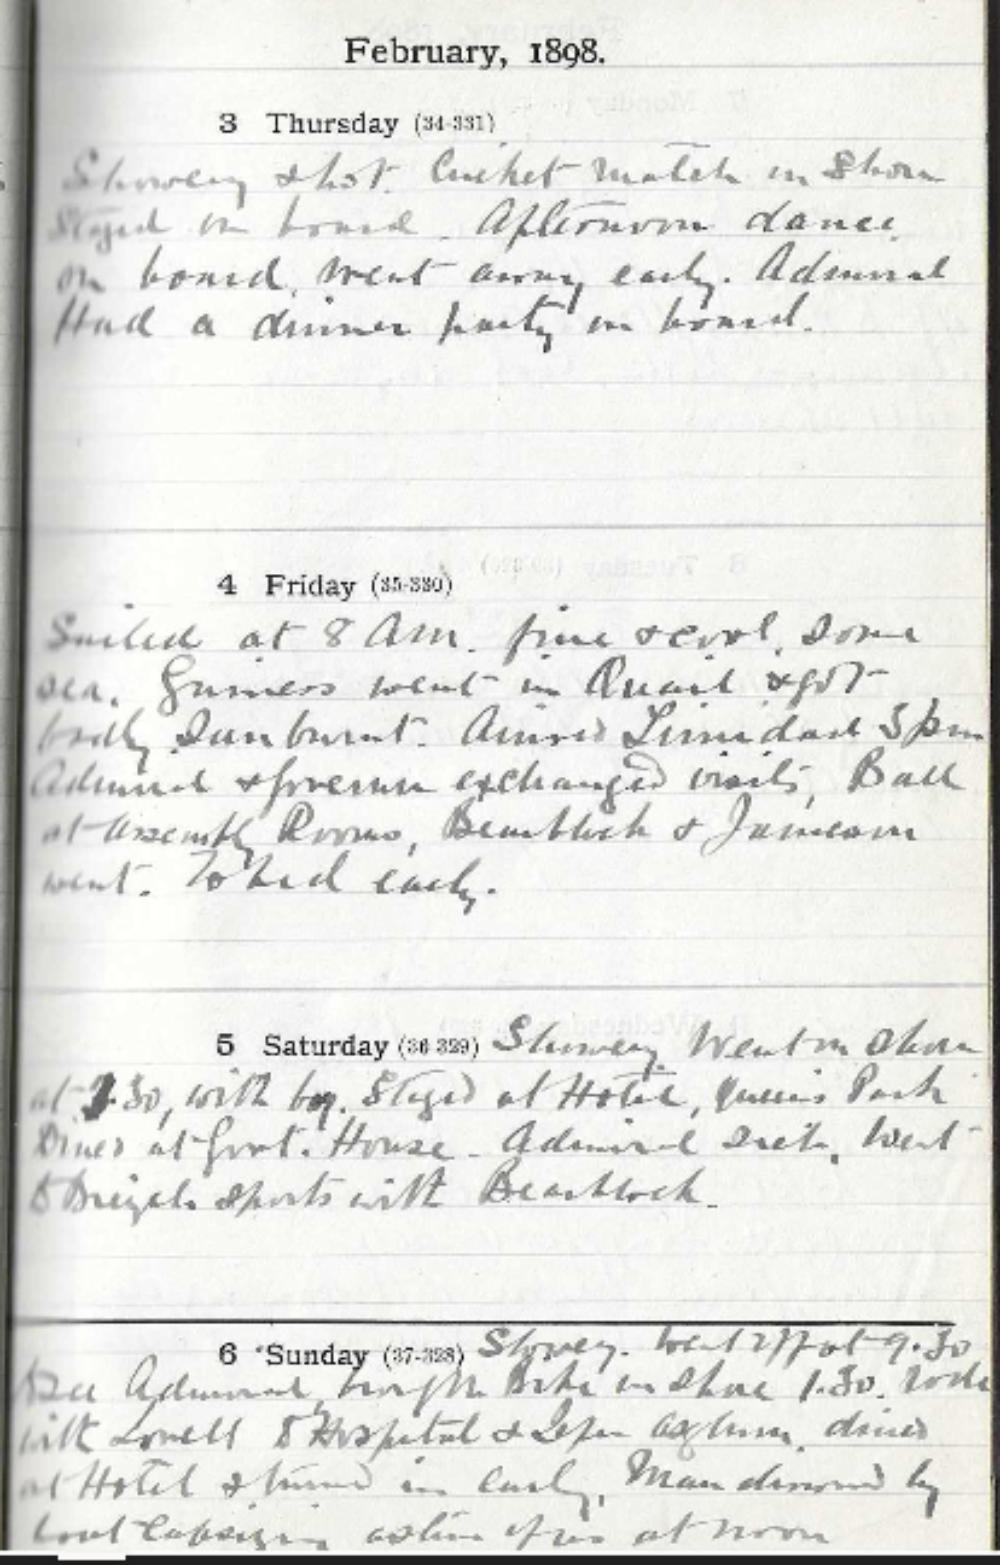 February, 1898.
3 Thursday (34-331)
Showery & hot. Cricket match on Shore
Stayed on board. Afternoon dance
on board, went away early. Admiral
Had a dinner party on board.
4 Friday (35-330)
Sailed at 8 Am. fine & cool, some
sea. went in Quail & got
badly Sunburnt. Arrived Trinidad 5 pm
Admiral & Governor exchanged visits, Ball
at Assembly Rooms, Bearblock & Jameson
went. To bed early.
5 Saturday (36-329) Showery. Went on shore
at 1.30, with bag. Stayed at Hotel, Queens Park
Dined at Govt. House. Admiral Went
to sports with Bearblock.
6 Sunday (37-328) Showery. Went off at 9.30
to see Admiral, brought Bike on shore 1.30. rode
with Lovell to Hospital & Leper asylum. dined
at Hotel & turned in early. Man drowned by
boat capsizing at noon